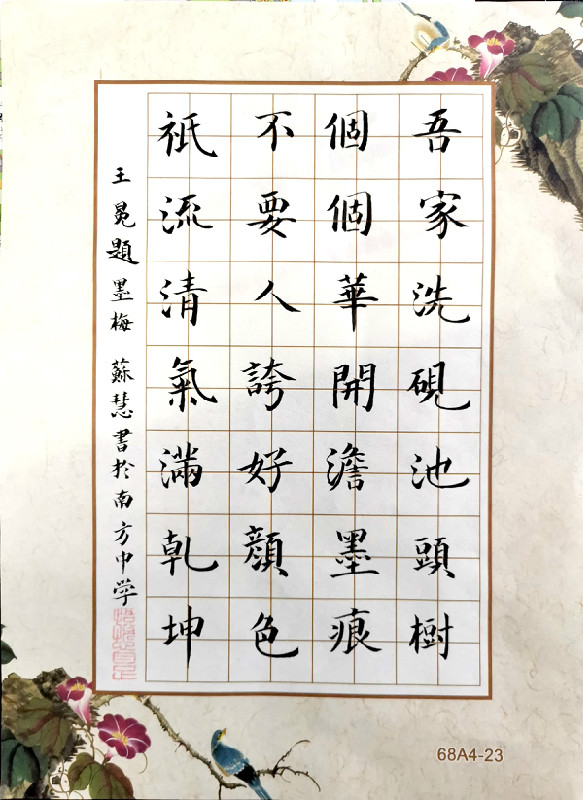 吾家洗硯池頭樹
個個華開澹墨痕
不要人誇好顔色
祇流清氣滿乾坤
王冕題墨梅 蘇慧書於南方中学
68A4-23